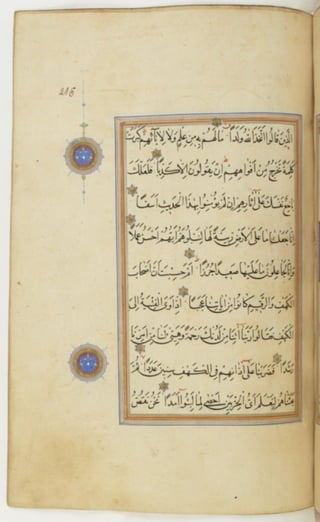 216
الَّذِينَ قَالُوا اتَّخَذَ اللَّهُ وَلَدًا مَا لَهُمْ بِهِ مِنْ عِلْمٍ وَلَا لِآبَائِهِمْ كَبُرَتْ
كَلِمَةً تَخْرُجُ مِنْ أَفْوَاهِهِمْ إِنْ يَقُولُونَ إِلَّا كَذِبًا فَلَعَلَّكَ
بَاخِعٌ نَفْسَكَ عَلَى آثَارِهِمْ إِنْ لَمْ يُؤْمِنُوا بِهَذَا الْحَدِيثِ أَسَفًا
إِنَّا جَعَلْنَا مَا عَلَى الْأَرْضِ زِينَةً لَهَا لِنَبْلُوَهُمْ أَيُّهُمْ أَحْسَنُ عَمَلًا
وَإِنَّا لَجَاعِلُونَ مَا عَلَيْهَا صَعِيدًا جُرُزًا أَمْ حَسِبْتَ أَنَّ أَصْحَابَ
الْكَهْفِ وَالرَّقِيمِ كَانُوا مِنْ آيَاتِنَا عَجَبًا إِذْ أَوَى الْفِتْيَةُ إِلَى
الْكَهْفِ فَقَالُوا رَبَّنَا آتِنَا مِنْ لَدُنْكَ رَحْمَةً وَهَيِّئْ لَنَا مِنْ أَمْرِنَا
رَشَدًا فَضَرَبْنَا عَلَى آذَانِهِمْ فِي الْكَهْفِ سِنِينَ عَدَدًا ثُمَّ
بَعَثْنَاهُمْ لِنَعْلَمَ أَيُّ الْحِزْبَيْنِ أَحْصَى لِمَا لَبِثُوا أَمَدًا نَحْنُ نَقُصُّ